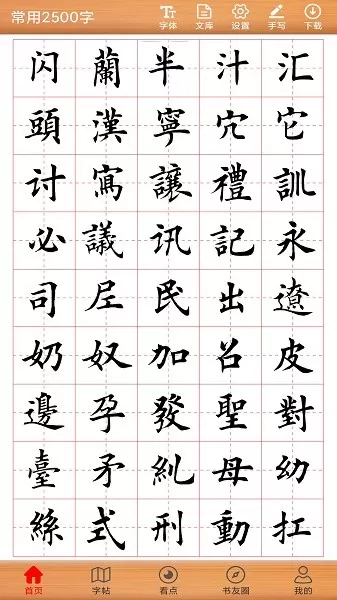 常用2500字
字体 文库 设置 手写 下载
闪 蘭 半 汁 汇
頭 漢 寧 穴 它
讨 寫 讓 禮 訓
必 議 讯 記 永
司 民 出 遼
奶 奴 加 召 皮
邊 孕 發 聖 對
臺 矛 糾 母 幼
絲 式 刑 動 扛
首页 字帖 看点 书友圈 我的